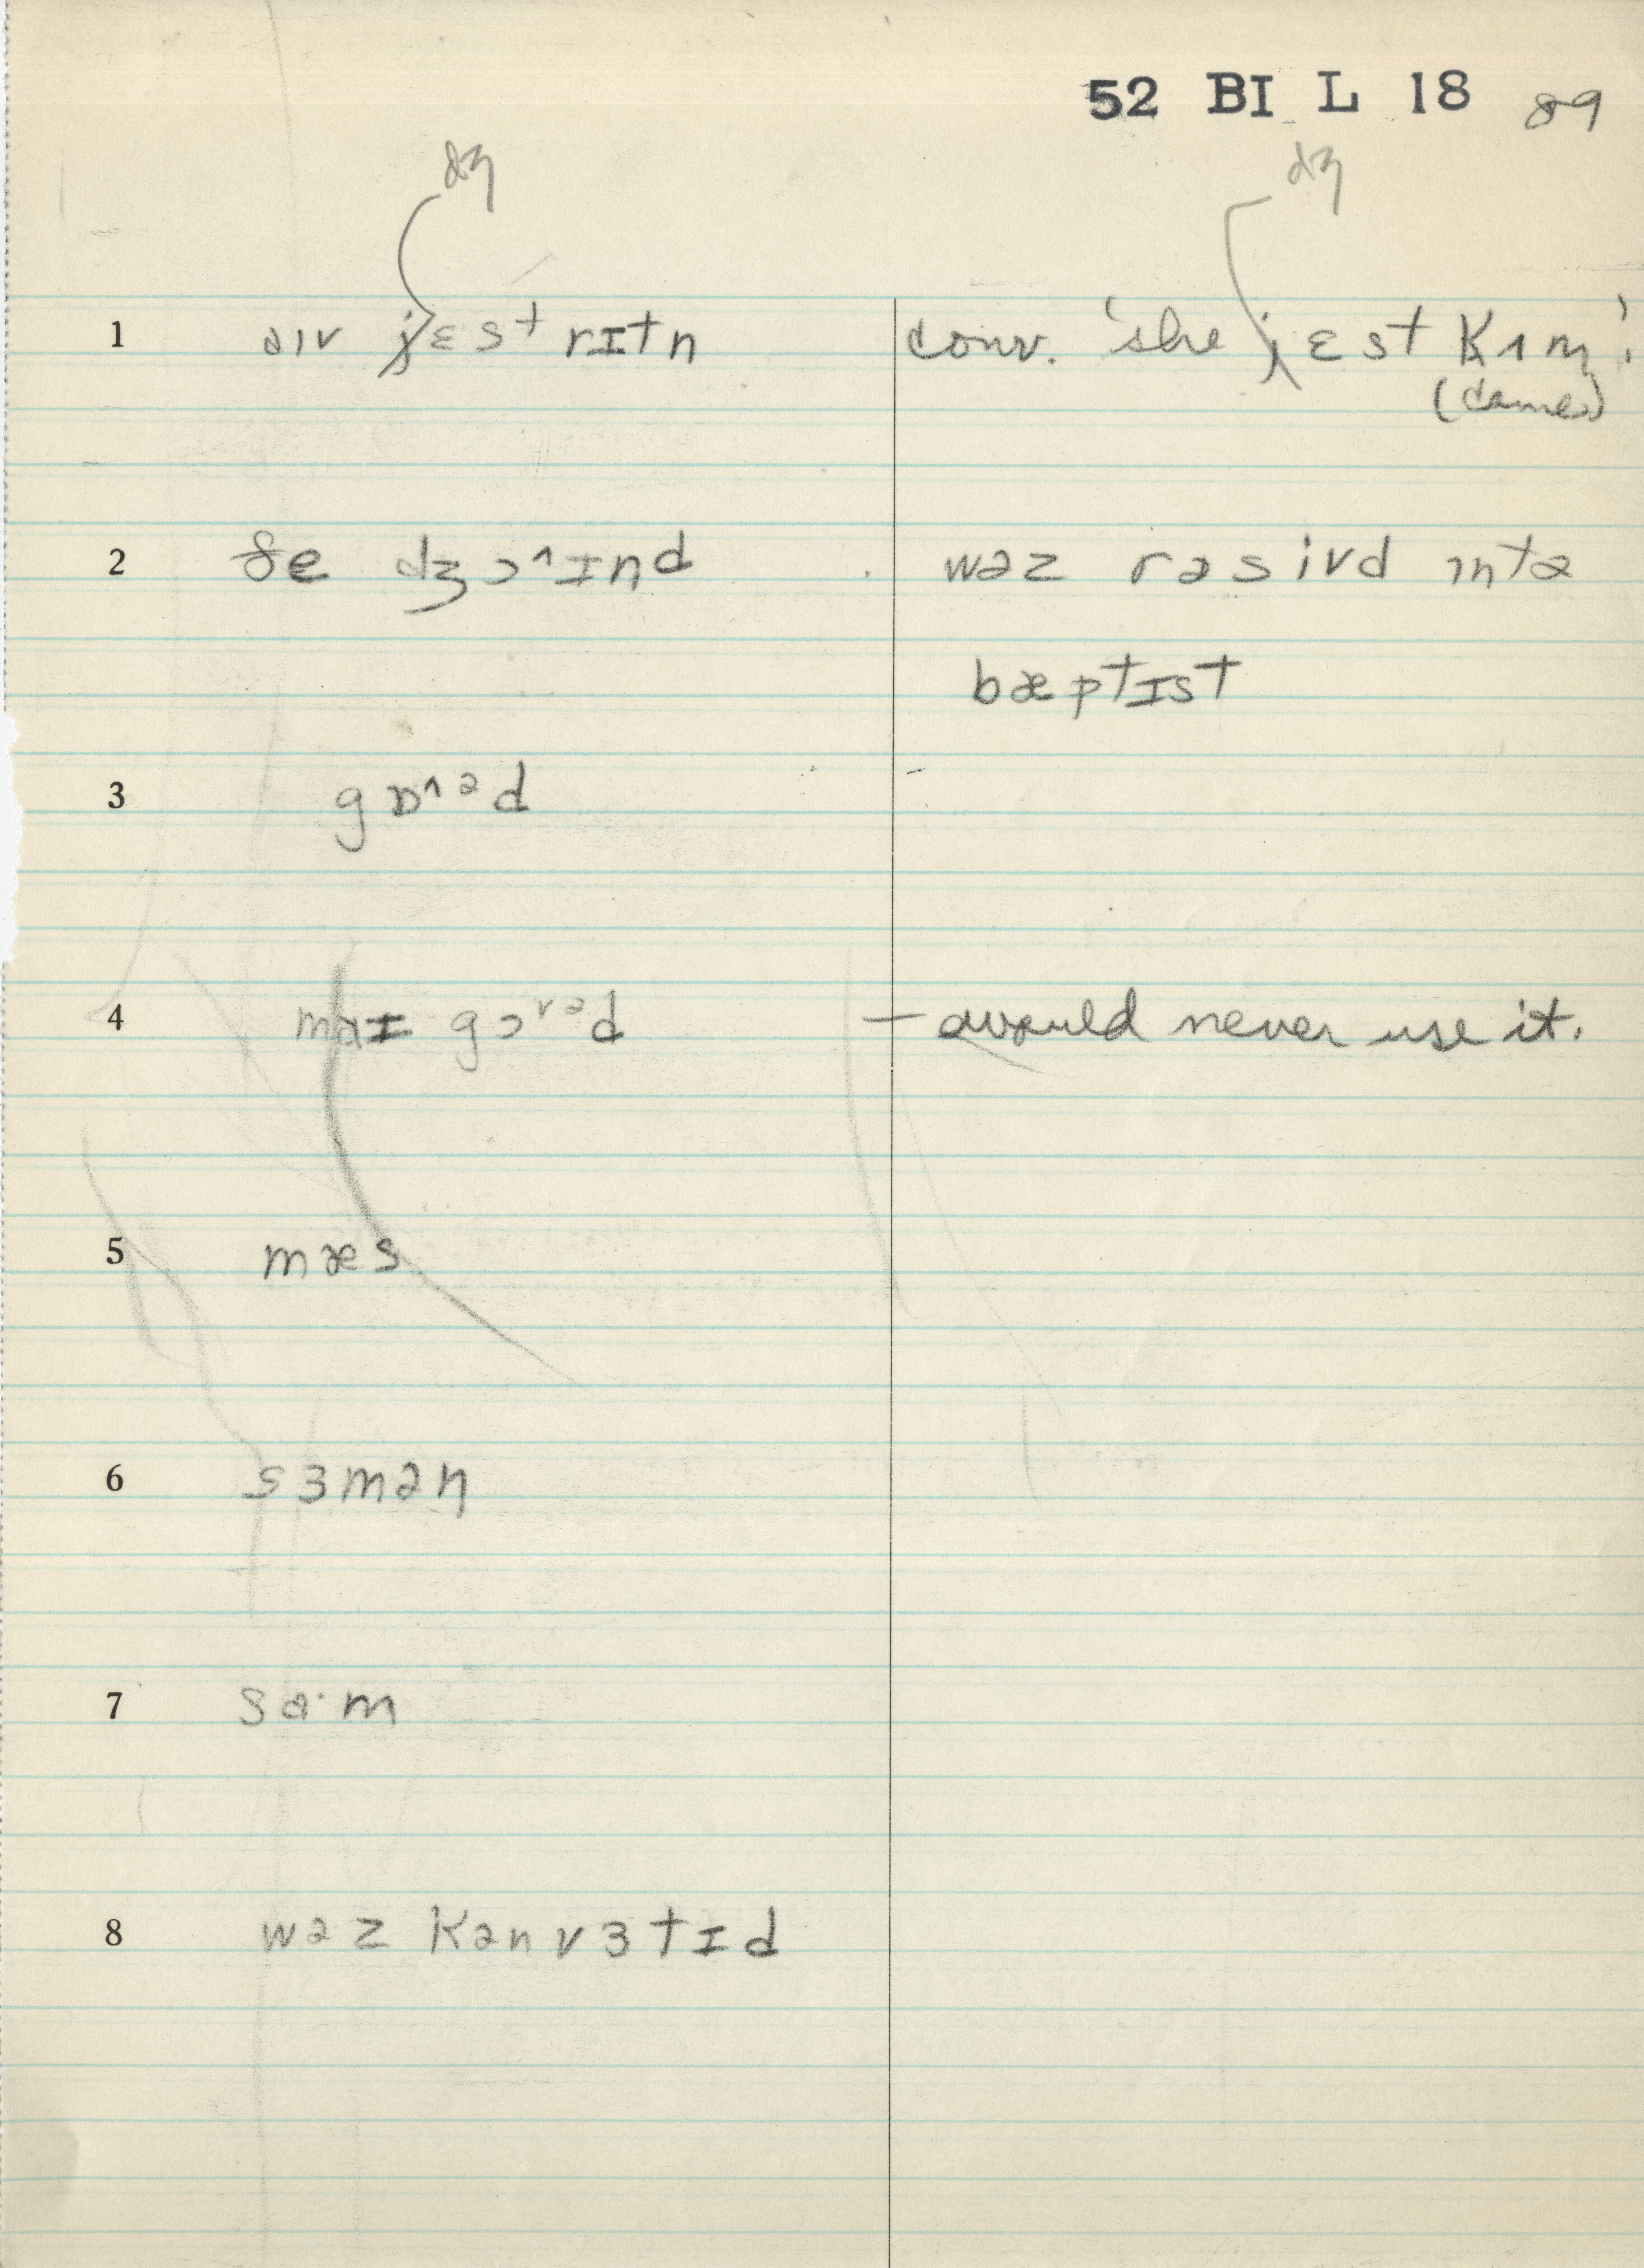 52 BI L 18 89
dʒ dʒ
1 aɪv jɛst rɪtn conv. 'she jɛst kʌm'.
(comes)
2 ðe dʒɔ^ɪnd wəz rəsivd ɪntə
bæptɪst
3 gɒ^əd
4 maɪ gɔ˅əd – would never use it.
5 mæs
6 sɜmən
7 sa·m
8 wəz kənvɜtɪd